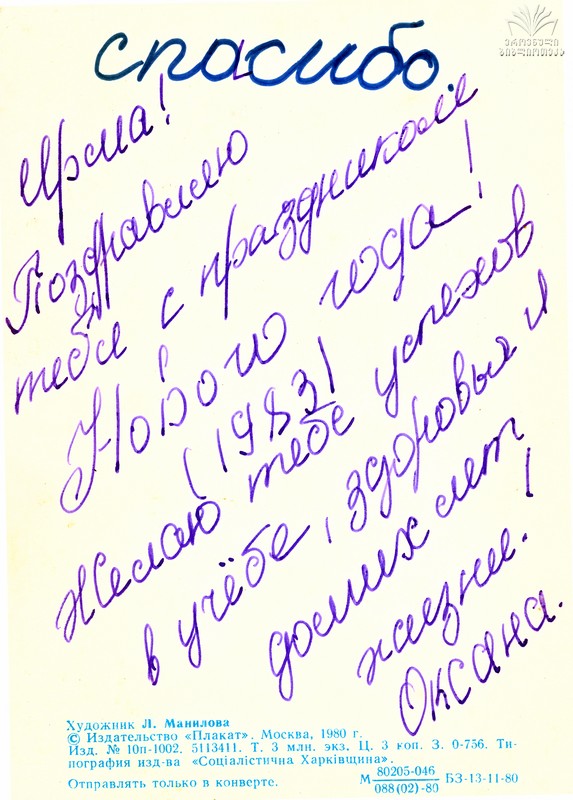 ეროვნული
ბიბლიოთეკა
спасибо.
Ирма!
Поздравляю
тебя с праздником
Нового года!
(1983)
Желаю тебе успехов
в учёбе, здоровья и
долгих лет
жизни!
Оксана.
Художник Л. Манилова
© Издательство «Плакат». Москва, 1980 г.
Изд. № 10п-1002. 5113411. Т. 3 млн. экз. Ц. 3 коп. З. 0-756. Ти-
пография изд-ва «Соціалістична Харківщина».
Отправлять только в конверте.
М 80205-046 / 088(02)-80 БЗ-13-11-80